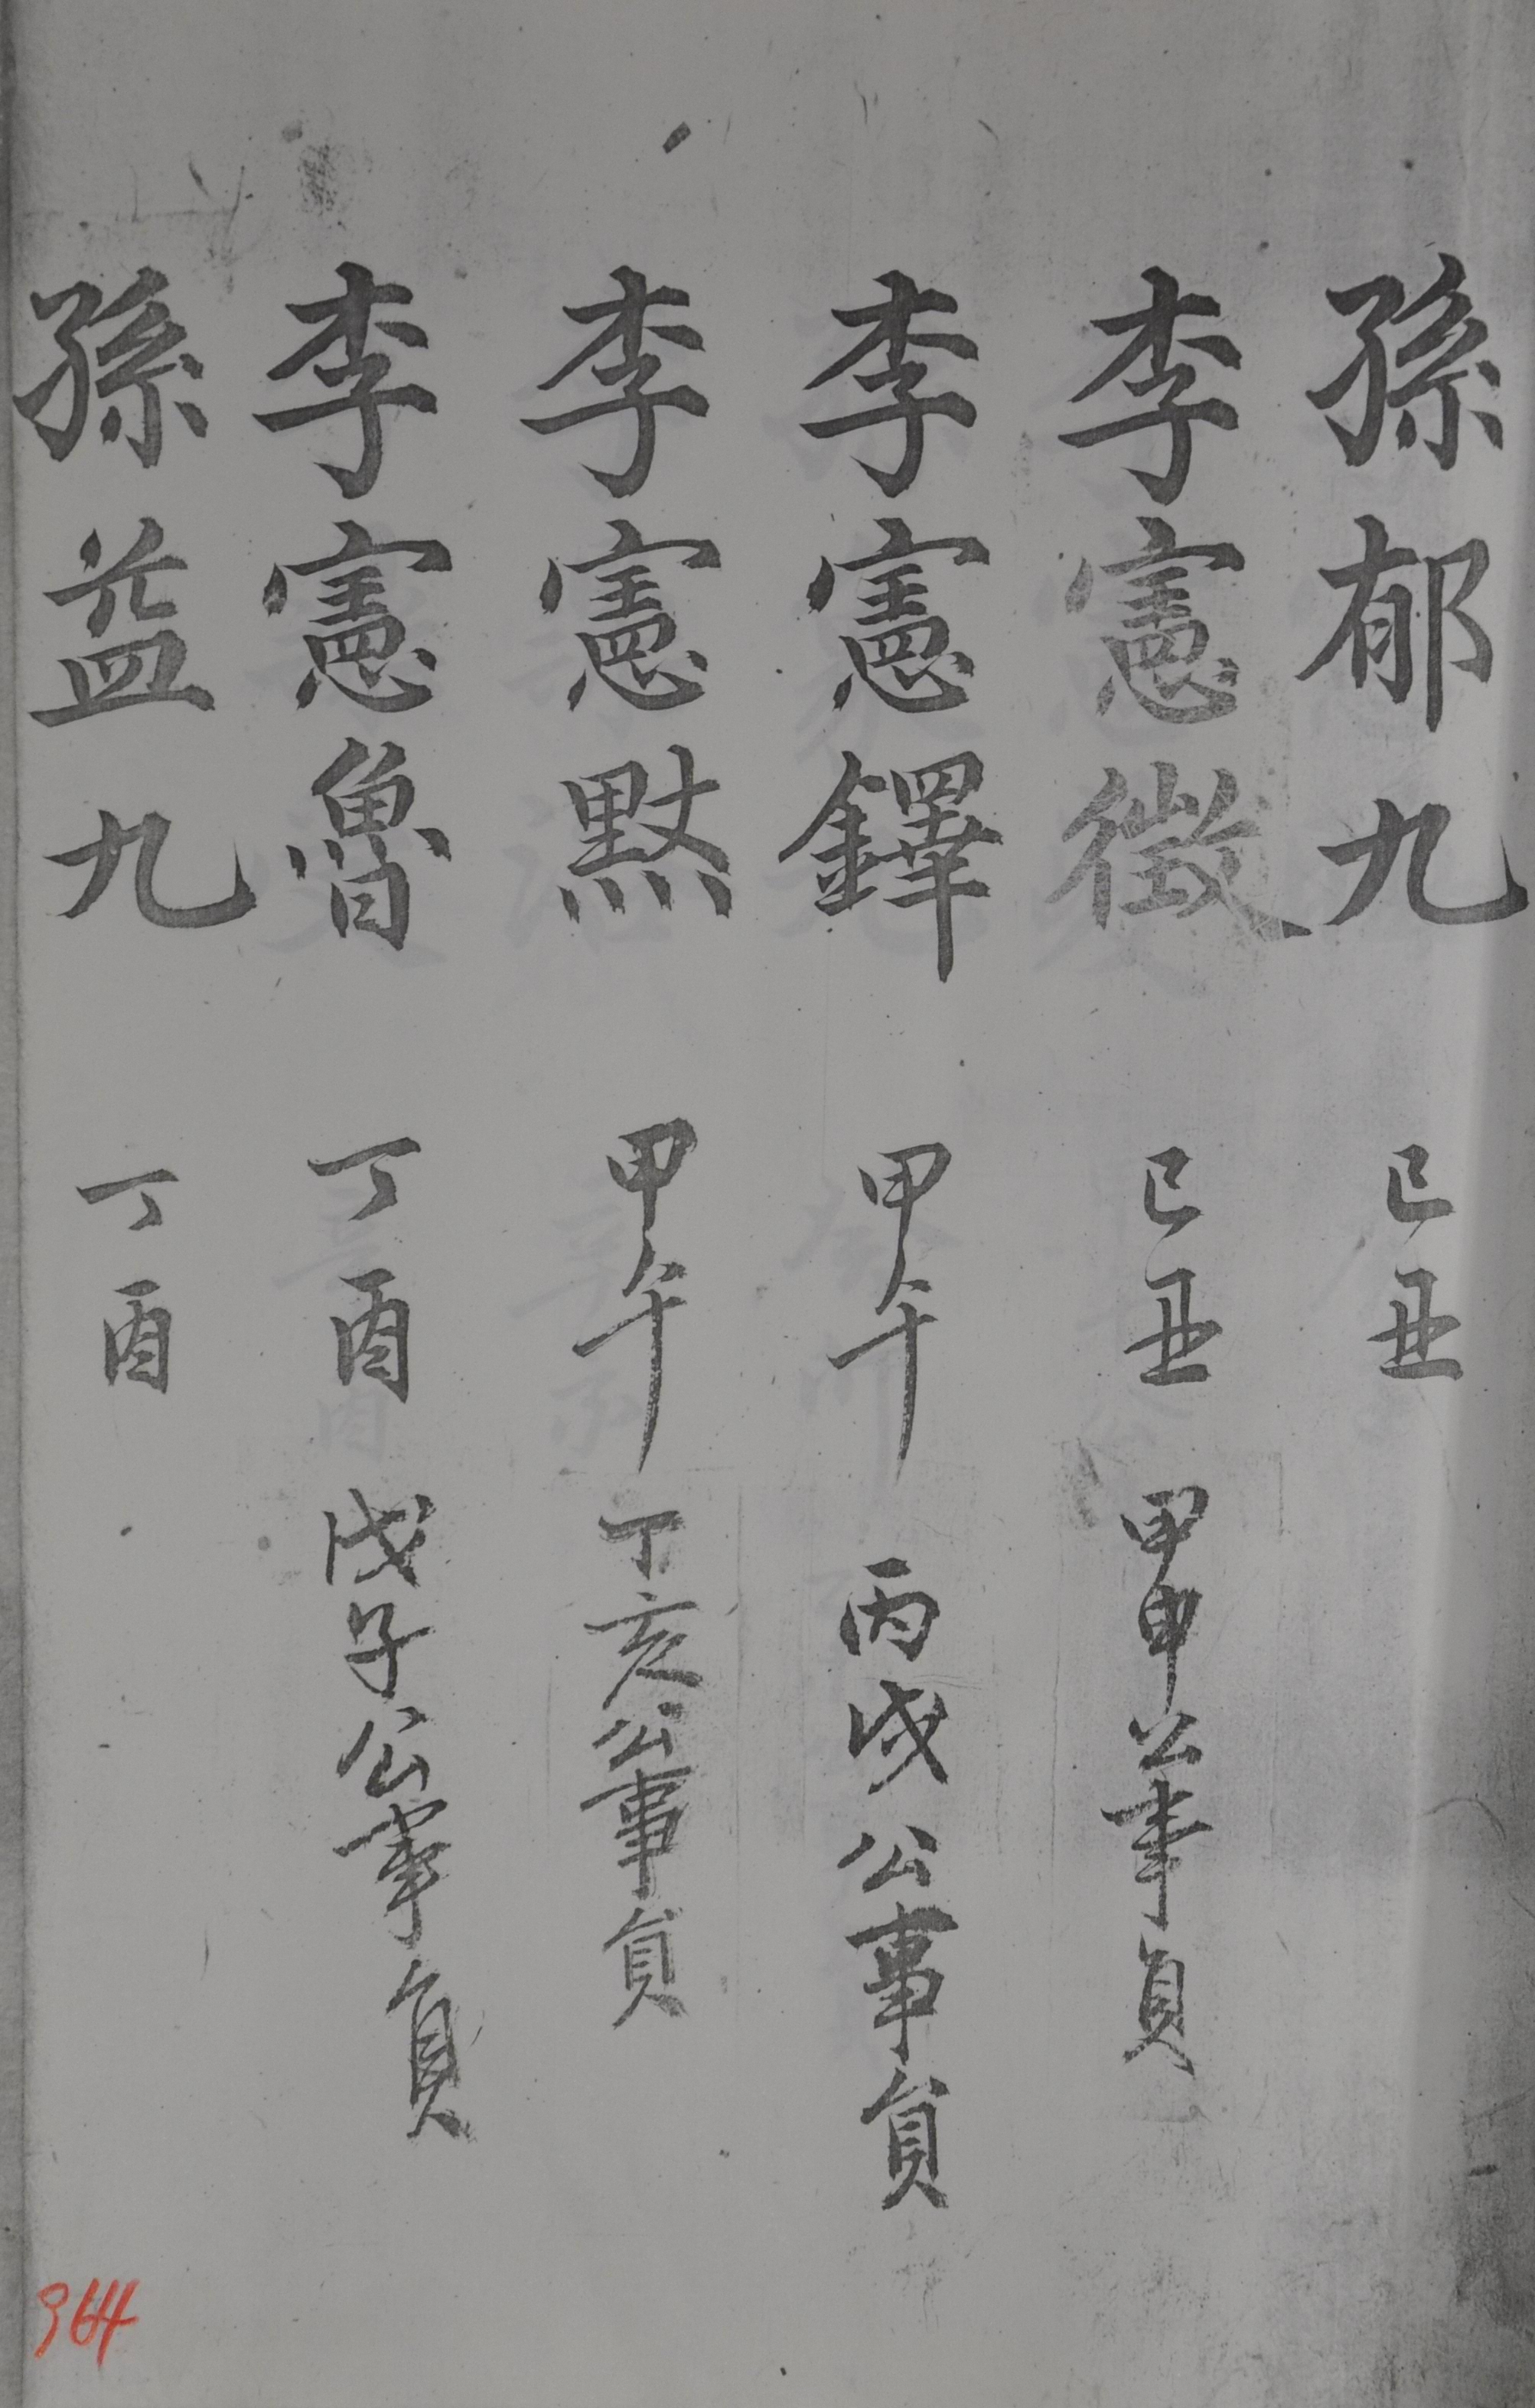 孫郁九 己丑
李憲徵 己丑 甲申公事員
李憲鐸 甲午 丙戌公事員
李憲默 甲午 丁亥公事員
李憲魯 丁酉 戊子公事員
孫益九 丁酉
964